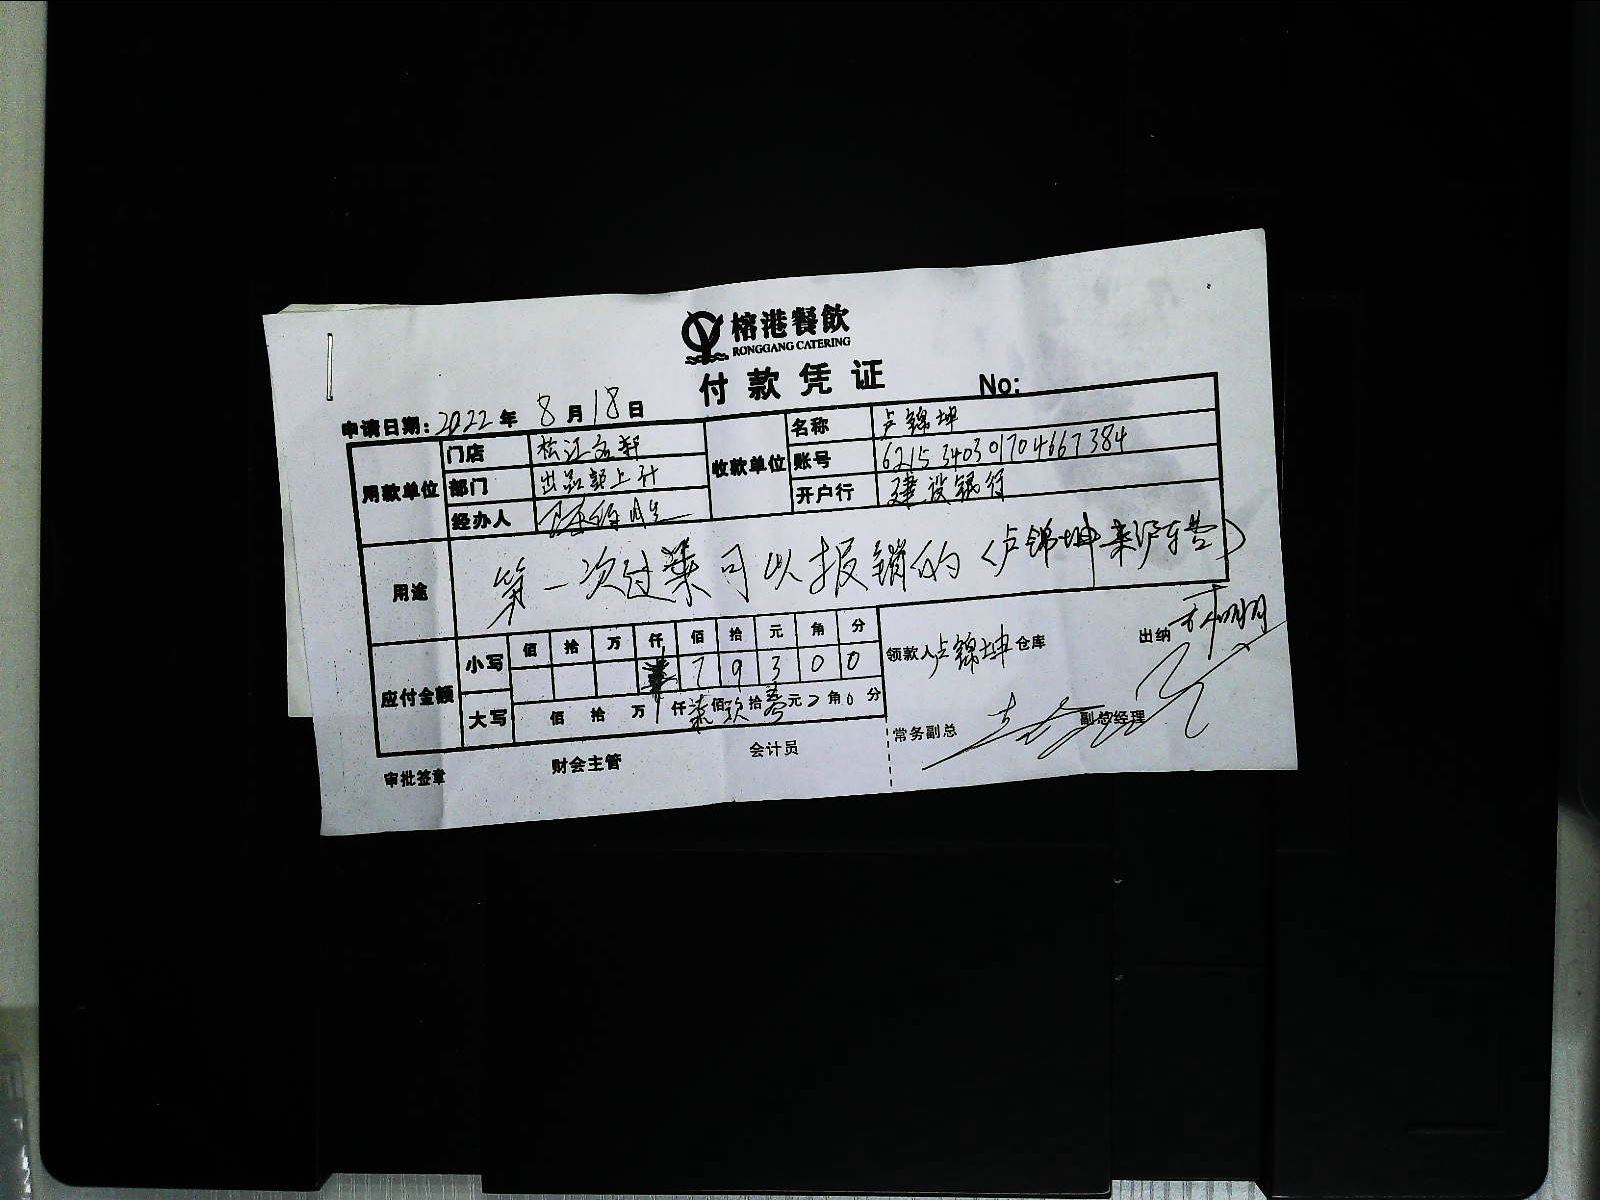 榕港餐飲
RONGGANG CATERING
付款凭证 No:
申请日期: 2022年 8月18日
用款单位 门店 松江
部门 出品部上什
经办人
收款单位 名称 卢锦坤
账号 6215340301704667384
开户行 建设银行
用途 第一次过来可以报销的(卢锦坤来沪车费)
应付金额 小写 佰 拾 万 仟 佰 拾 元 角 分
7 9 3 0 0
大写 佰 拾 万 仟柒佰玖拾叁元0角0分
领款人 卢锦坤 仓库 出纳
常务副总 副总经理
审批签章 财会主管 会计员